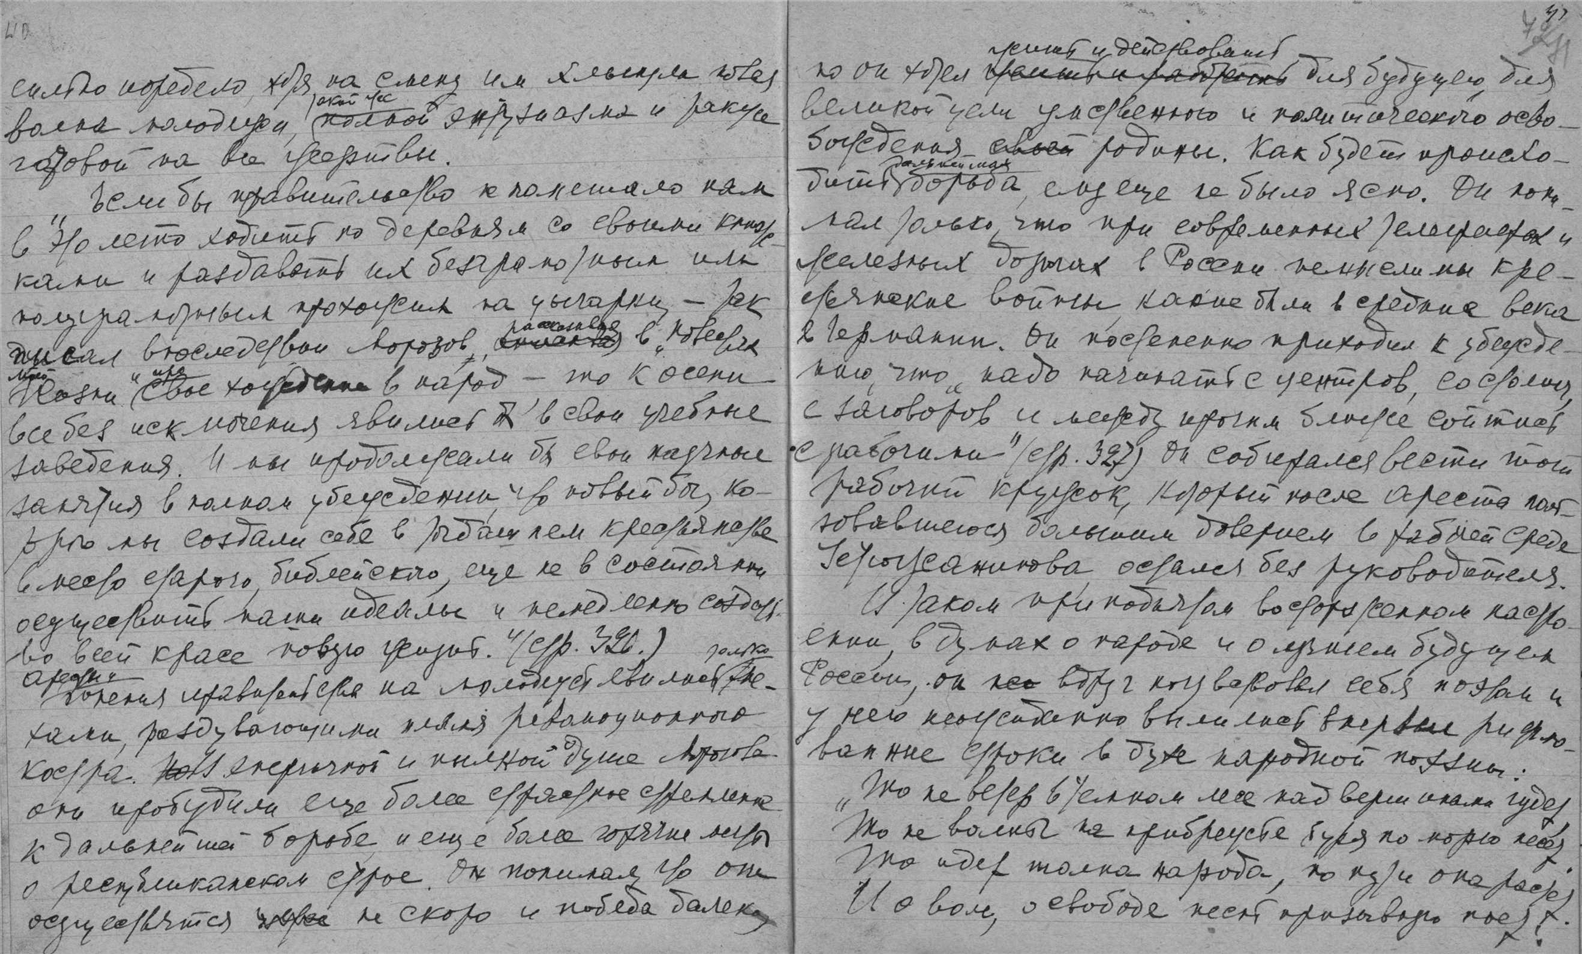 40
сильно поредело, хотя на смену им хлынула новая
волна молодежи, полной энтузиазма и также
готовой на все жертвы.
"Если бы правительство не помешало нам
в это лето ходить по деревням со своими книж-
ками и раздавать их безграмотным или
полуграмотным прохожим на цыгарки, — так
писал впоследствии Морозов, в "Повестях
моей жизни" про свое хождение в народ — то к осени
все без исключения явились б в свои учебные
заведения. И мы продолжали бы свои научные
занятия в полном убеждении, что новый бог, ко-
торого мы создали себе в тогдашнем крестьянстве
вместо старого, библейского, еще не в состоянии
осуществить наши идеалы и немедленно создать
во всей красе новую жизнь." (стр. 326.)
Гонения правительства на молодежь явились только ме-
хами, раздувающими пламя революционного
костра. В энергичной и пылкой душе Морозова
они пробудили еще более страстное стремление
к дальнейшей борьбе и еще более горячие мечты
о республиканском строе. Он понимал, что они
осуществятся не скоро и победа далека,
но он хотел жить и действовать для будущего, для
великой цели умственного и политического осво-
бождения своей родины. Как будет происхо-
дить дальнейшая борьба, ему еще не было ясно. Он пони-
мал только, что при современных телеграфах и
железных дорогах в России немыслимы кре-
стьянские войны, какие были в средние века
в Германии. Он постепенно приходил к убежде-
нию, что "надо начинать с центров, со столиц,
с заговоров и между прочим ближе сойтись
с рабочими" (стр. 327) Он собирался вести тот
рабочий кружок, который после ареста поль-
зовавшегося большим доверием в рабочей среде
остался без руководителя.
В таком приподнятом восторженном настро-
ении, в думах о народе и о лучшем будущем
России, он вдруг почувствовал себя поэтом и
у него неожиданно вылились впервые рифмо-
ванные строки в духе народной поэзии:
"То не ветер в темном лесе над вершинами гудет,
То не волны на прибрежье буря по морю несет,
То идет толпа народа, по пути она растет
И о воле, о свободе песнь призывную поет.